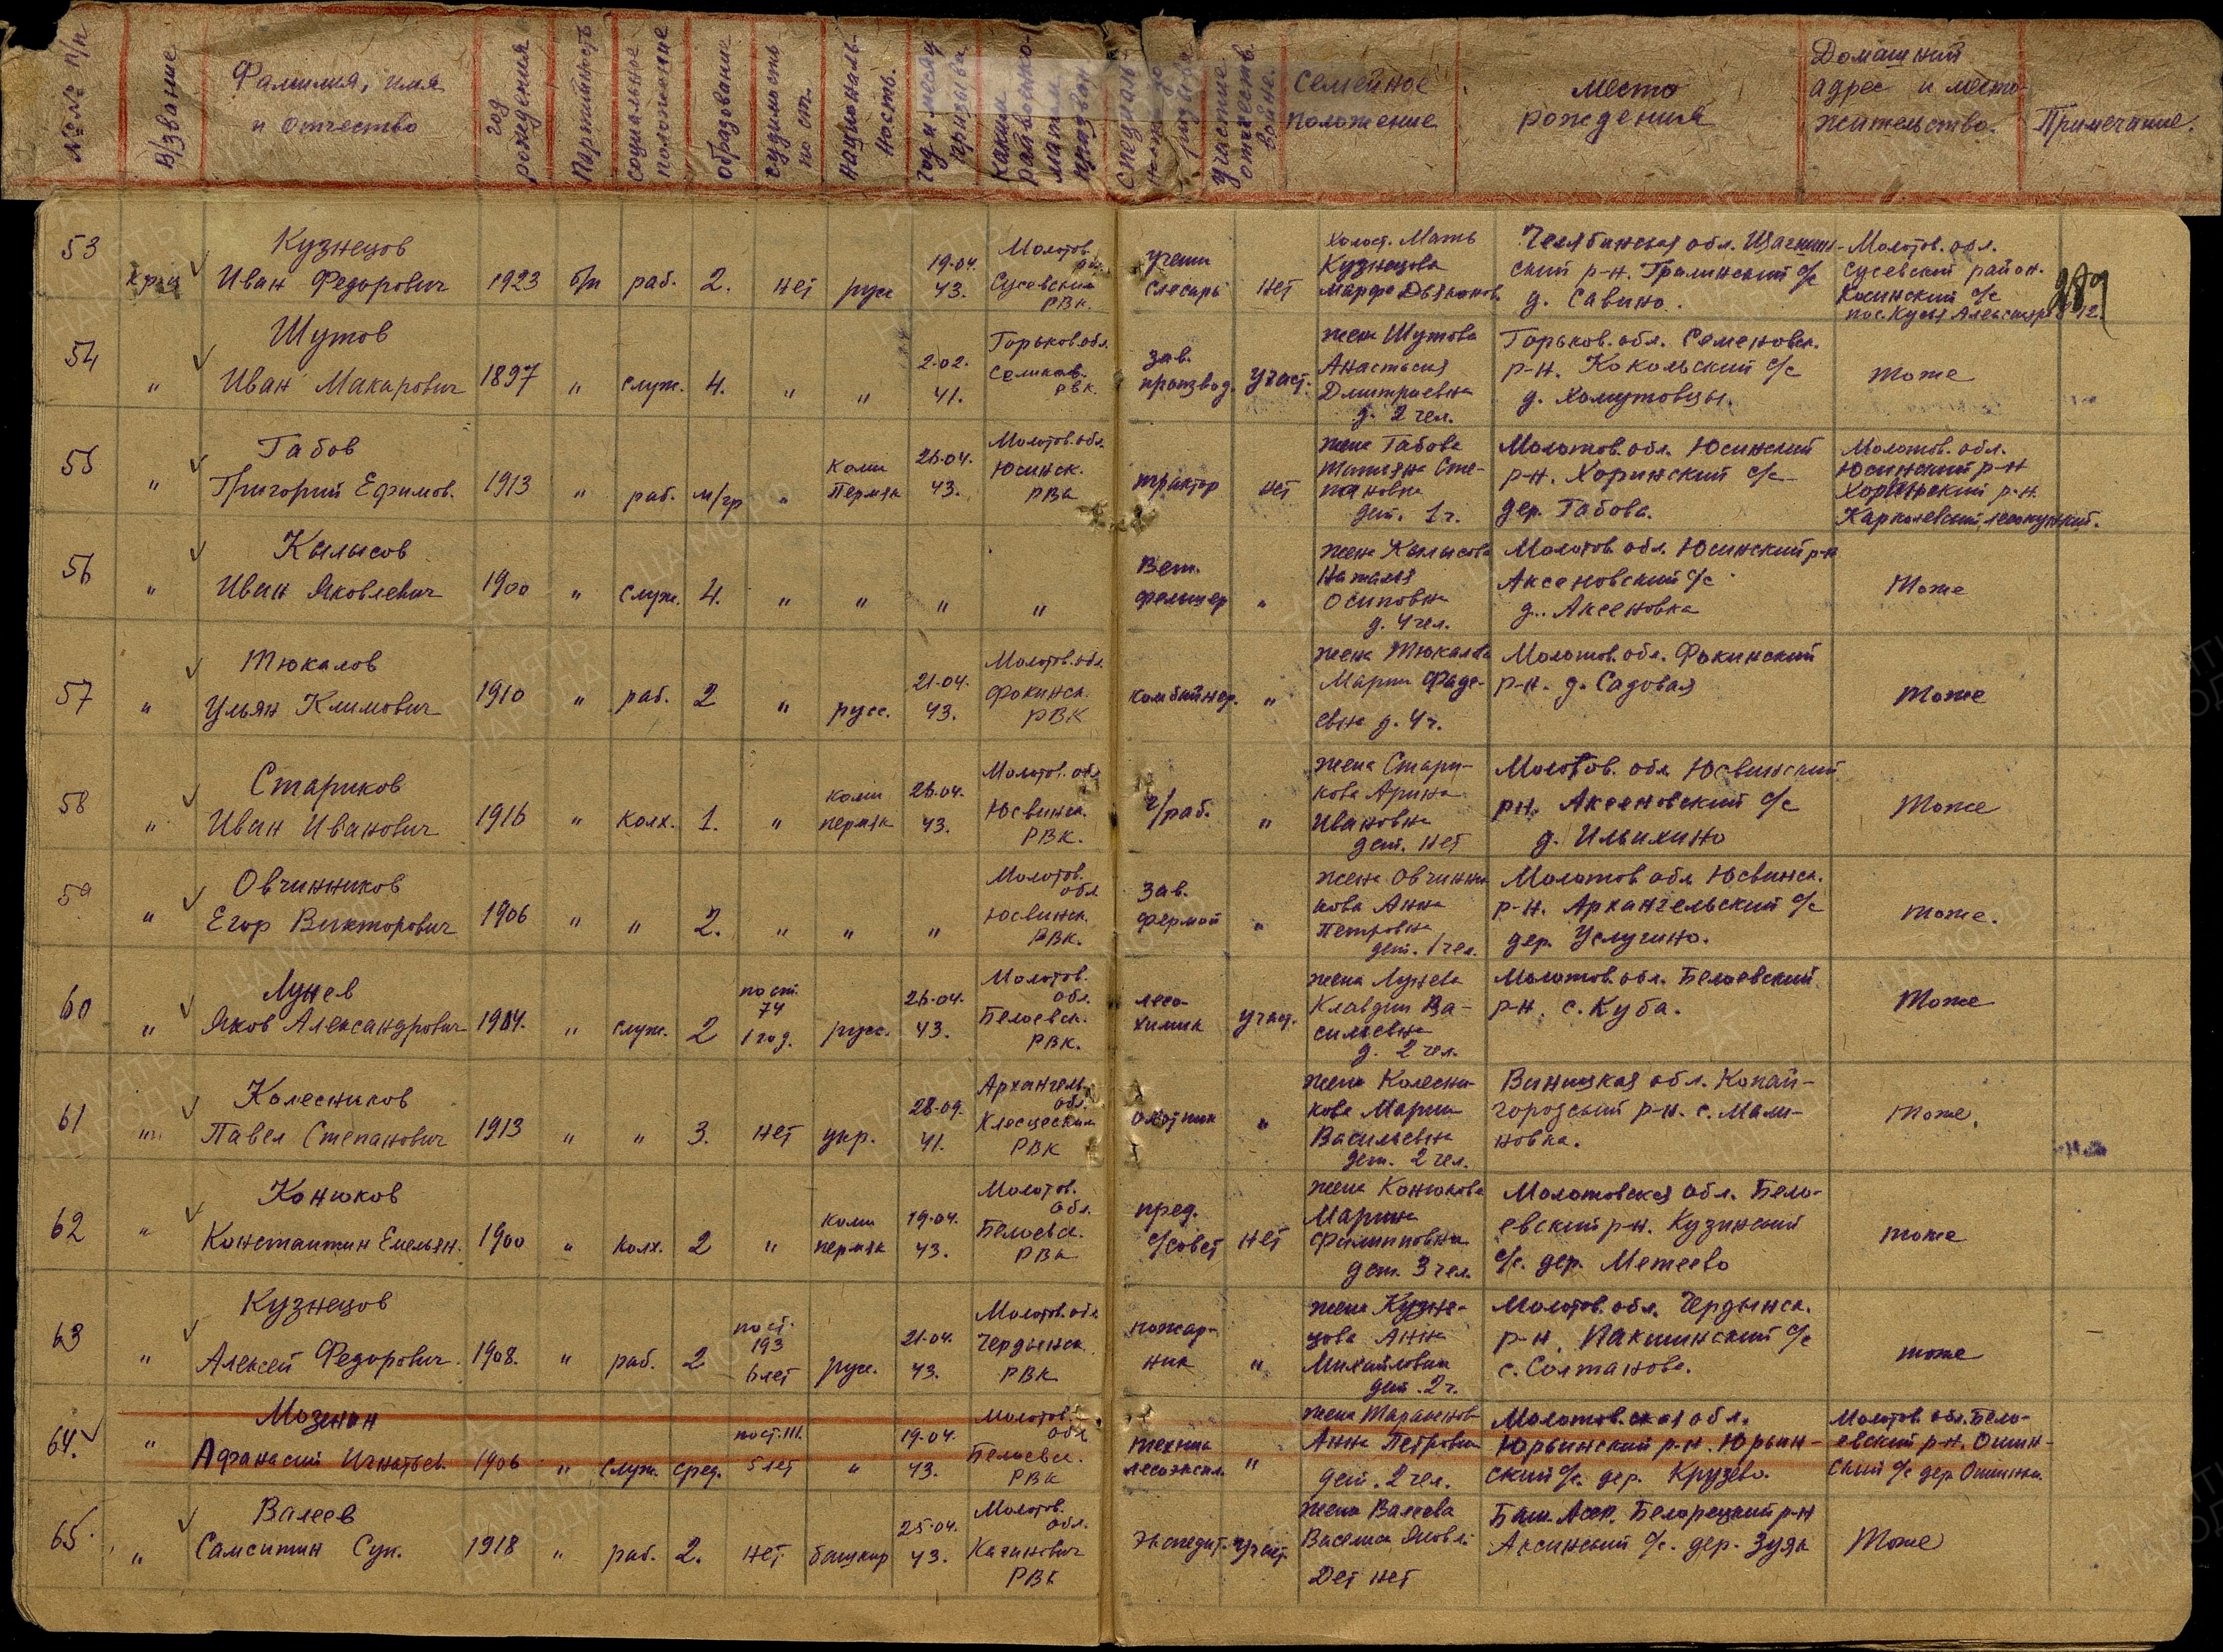 №№ п/п
В/звание
Фамилия, имя
и отчество
год
рождения
Партийность
социальное
положение
образование
судимость
по ст.
националь-
ность.
год и месяц
призыва
каким
райвоенко-
матом
призван.
участие
отечеств.
войне.
Семейное
положение
место
рождения
Домашний
адрес и место-
жительство.
Примечание.
53
Кр-ц
Кузнецов
Иван Федорович
1923
б/п
раб.
2.
нет
русс
19-04.
43.
Молотов.
Сусевский
РВк.
слесарь
нет
Холост. Мать
Кузнецова
Челябинская обл.
ский р-н. с/с
д. Савино.
Молотов. обл.
сусевский район.
Косинский с/с
289
54
"
Шутов
Иван Макарович
1897
"
служ.
4.
"
"
2-02.
41.
Горьков. обл.
РВК.
зав.
производ.
участ.
жена Шутова
Анастасия
Дмитриевна
д. 2 чел.
Горьков. обл. Семеновск.
р-н. Кокольский с/с
д. Хомутовцы.
тоже
55
"
Габов
Григорий Ефимов.
1913
"
раб.
м/гр
"
коми
Пермяк
26-04.
43.
Молотов. обл.
Юсинск.
РВк
трактор
нет
жена Габова
Татьяна Сте-
пановна
дет. 1 ч.
Молотов. обл. Юсинский
р-н. Хоринский с/с
дер. Габова.
Молотов. обл.
Юсинский р-н
Хоринский р-н.
56
"
Кылысов
Иван Яковлевич
1900
"
служ.
4.
"
"
"
"
Вет.
фельшер
"
жена Кылысова
Наталья
Осиповна
д. 4 чел.
Молотов. обл. Юсинский р-н
Аксеновский с/с
д. Аксеновка
Тоже
57
"
Тюкалов
Ульян Климович
1910
"
раб.
2
"
русс.
21-04.
43.
Молотов. обл.
Фокинск.
РВК
комбайнер.
"
жена Тюкалова
Мария Фаде-
евна д. 4 ч.
Молотов. обл. Фокинский
р-н. д. Садовая
Тоже
58
"
Стариков
Иван Иванович
1916
"
колх.
1.
"
коми
пермяк
26-04.
43.
Молотов. обл
Юсвинск.
РВК.
ч/раб.
"
жена Стари-
кова Арина
Ивановна
дет. нет
Молотов. обл. Юсвинский
рн. Аксеновский с/с
д. Ильихино
Тоже
59
"
Овчинников
Егор Викторович
1906
"
"
2.
"
"
"
Молотов.
обл
Юсвинск.
РВК.
Зав.
фермой
"
жена Овчинни
кова Анна
Петровна
дет. 1 чел.
Молотов обл Юсвинск.
р-н. Архангельский с/с
дер. Услугино.
тоже.
60
"
Лунев
Яков Александрович
1904.
"
служ.
2
по ст.
74
1 год.
русс.
26-04.
43.
Молотов.
обл.
Белоевск.
РВК.
лесо-
химик
участ.
жена Лунева
Клавдия Ва-
сильевна
д. 2 чел.
Молотов. обл. Белоевский
р-н. с. Куба.
Тоже
61
"
Колесников
Павел Степанович
1913
"
"
3.
нет
укр.
28-09.
41.
Архангель.
обл.
РВК
охотник
"
жена Колесни-
кова Мария
Васильевна
дет. 2 чел.
Виницкая обл. Копай-
городский р-н. с. Мали-
новка.
тоже.
62
"
Конюков
Константин Емельян.
1900
"
колх.
2
"
коми
пермяк
19-04.
43.
Молотов.
обл.
Белоевск.
РВк
пред.
с/совет
нет
жена Конюкова
Марина
Филипповна
дет. 3 чел.
Молотовская обл. Бело-
евский р-н. Кузинский
с/с. дер. Метеево
тоже
63
"
Кузнецов
Алексей Федорович.
1908.
"
раб.
2
по ст.
193
6 лет
русс.
21-04.
43.
Молотов. обл
Чердынск.
РВК
пожар-
ник
"
жена Кузне-
цова Анна
Михайловна
дет. 2 ч.
Молотов. обл. Чердынск.
р-н. с/с
с. Солтаново.
тоже
64.
"
Мозенан
Афанасий Игнатьев.
1906
"
служ.
сред.
по ст. 111.
5 лет
"
19-04.
43.
Молотов.
обл
Белоевск.
РВК
техник
лесоэкспл.
"
жена
Анна Петровна
дет. 2 чел.
Молотов.ская обл.
Юрьинский р-н. Юрьин-
ский с/с. дер. Крузево.
Молотов. обл. Бело-
евский р-н. Ошин-
ский с/с дер Ошинка.
65.
"
Валеев
Самситин Сун.
1918
"
раб.
2.
нет
башкир
25-04.
43.
Молотов.
обл.
Каганович
РВК
Экспедит.
участ.
жена Валеева
Дет нет
Баш. Асср. Белорецкий р-н
с/с. дер. Зуяк
Тоже